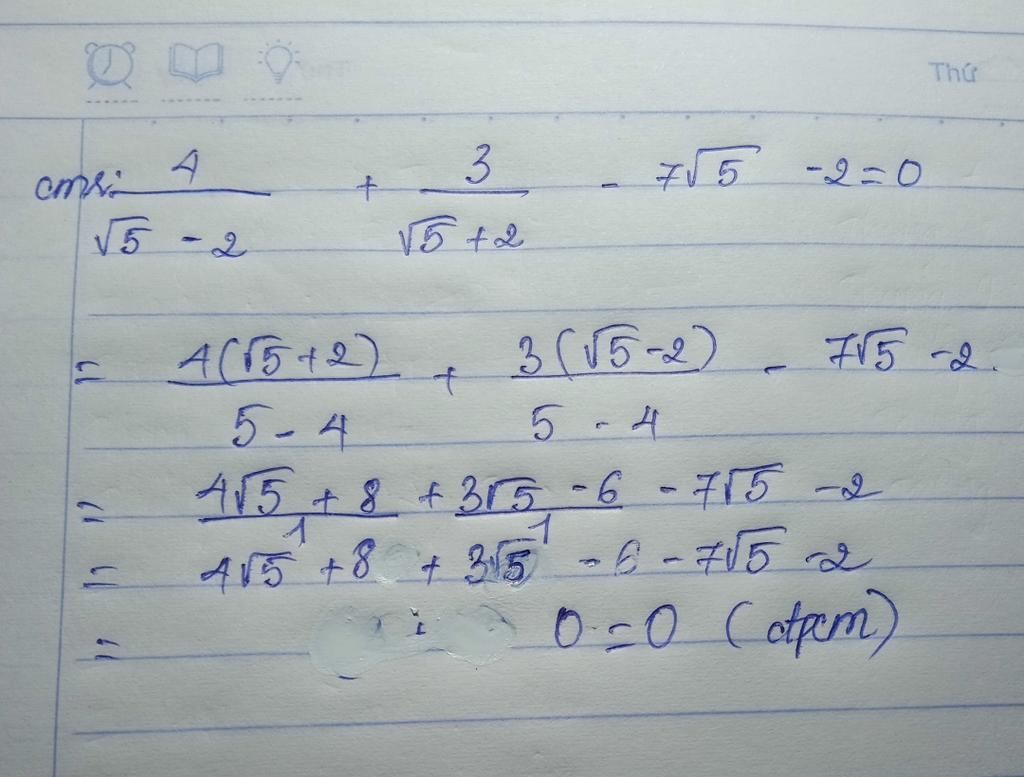 Thứ
cmr: 4/(√5 - 2) + 3/(√5 + 2) - 7√5 - 2 = 0
= 4(√5 + 2)/(5 - 4) + 3(√5 - 2)/(5 - 4) - 7√5 - 2.
= (4√5 + 8)/1 + (3√5 - 6)/1 - 7√5 - 2
= 4√5 + 8 + 3√5 - 6 - 7√5 - 2
= 0 = 0 (đpcm)